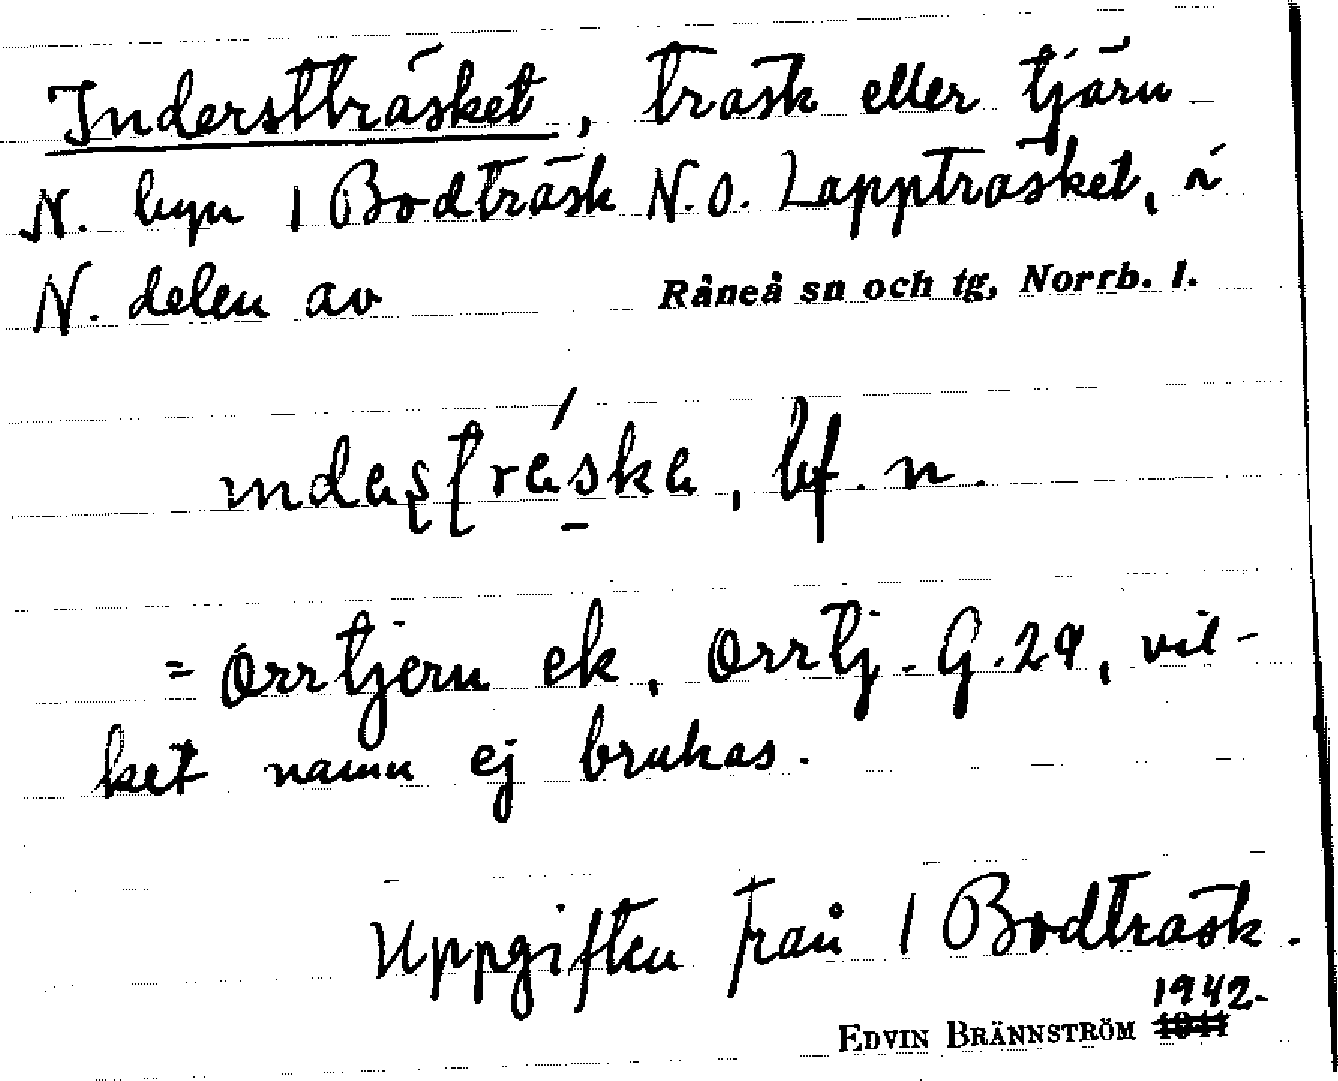 Inderstträsket, träsk eller tjärn
N. byn 1 Bodträsk N.O. Lappträsket, i
N. delen av Råneå sn och tg, Norrb. l.
bf. n.
= Orrtjern ek, Orrtj. G. 29, vil-
ket namn ej brukas.
Uppgiften från 1 Bodträsk.
1942.
EDVIN BRÄNNSTRÖM 1941